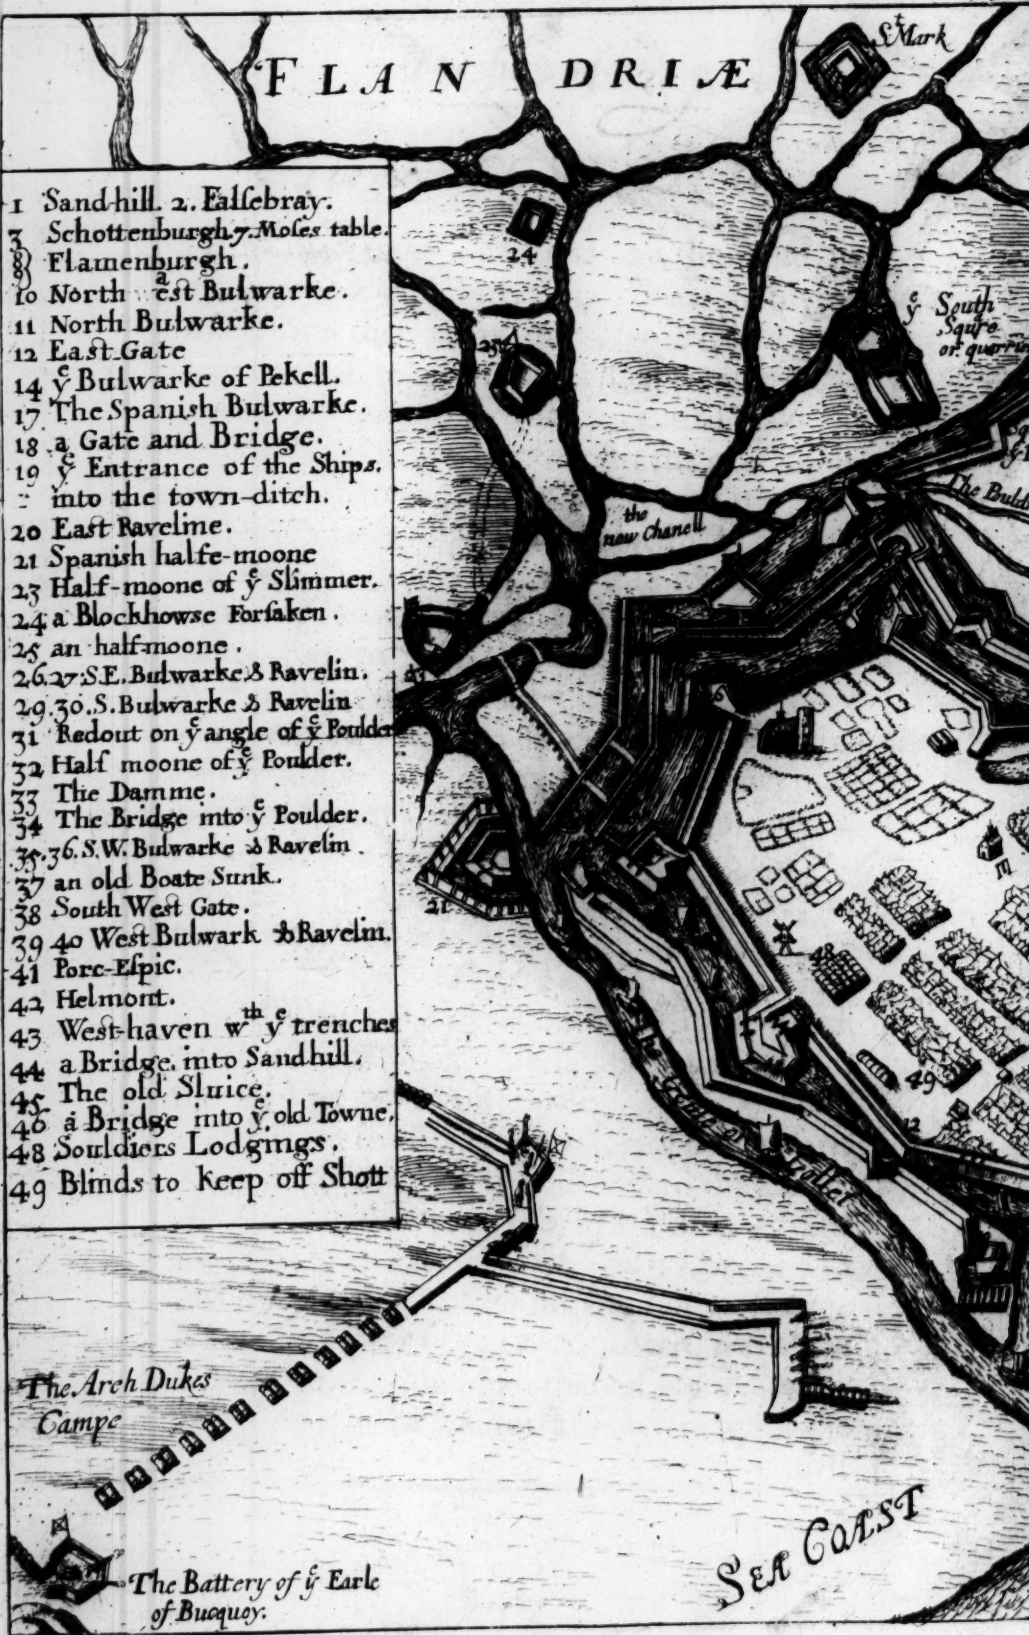 FLANDRIÆ
St Mark
1 Sand-hill. 2. Falſebray.
3 Schottenburgh. 7. Moſes table.
8 Flamenburgh.
10 North east Bulwarke.
11 North Bulwarke.
12 East Gate
14 ye Bulwarke of Pekell.
17 The Spanish Bulwarke.
18 a Gate and Bridge.
19 ye Entrance of the Ships.
into the town-ditch.
20 East Raveline.
21 Spanish halfe-moone
23 Half-moone of ye Slimmer.
24 a Blockhowse Forſaken.
25 an half-moone.
26.27. S.E. Bulwarke & Ravelin.
29.30. S. Bulwarke & Ravelin
31 Redout on ye angle of ye Poulder
32 Half moone of ye Poulder.
33 The Damme.
34 The Bridge into ye Poulder.
35.36. S.W. Bulwarke & Ravelin.
37 an old Boate Sunk.
38 South West Gate.
39 40 West Bulwark & Ravelin.
41 Porc-Eſpic.
42 Helmont.
43 West-haven wth ye trenches
44 a Bridge into Sandhill.
45 The old Sluice.
46 a Bridge into ye old Towne.
48 Souldiers Lodgings.
49 Blinds to keep off Shott
24
25
ye South
Squre
or quarrin
The Buld
the
new Chanell
26
21
48
49
12
The
or
The Arch Dukes
Campe
The Battery of ye Earle
of Bucquoy.
SEA COAST